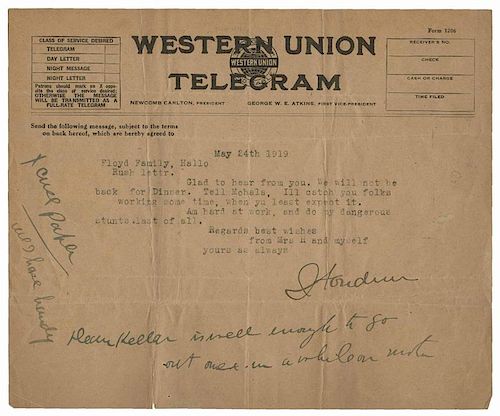 Form 1206
CLASS OF SERVICE DESIRED
TELEGRAM
DAY LETTER
NIGHT MESSAGE
NIGHT LETTER
Patrons should mark an X opposite the class of service desired;
OTHERWISE THE MESSAGE
WILL BE TRANSMITTED AS A
FULL-RATE TELEGRAM
WESTERN UNION
WESTERN UNION
TELEGRAM
NEWCOMB CARLTON, PRESIDENT
GEORGE W. E. ATKINS, FIRST VICE-PRESIDENT
RECEIVER'S NO.
CHECK
CASH OR CHARGE
TIME FILED
Send the following message, subject to the terms
on back hereof, which are hereby agreed to
May 24th 1919
Floyd Family, Hallo
Rush lettr.
Glad to hear from you. We will not be
back for Dinner. Tell Mohels, Ill catch you folks
working some time, when yu least expect it.
Am hard at work, and do my dangerous
stunts.last of all.
Regards best wishes
from Mrs H and myself
yours as always
Houdini
Dear Kellar is well enough to go
out once in a while on
paper
have handy